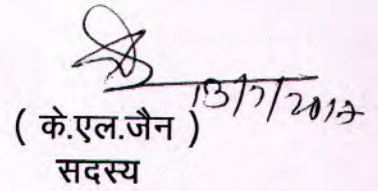 13/7/2017
( के.एल.जैन )
सदस्य